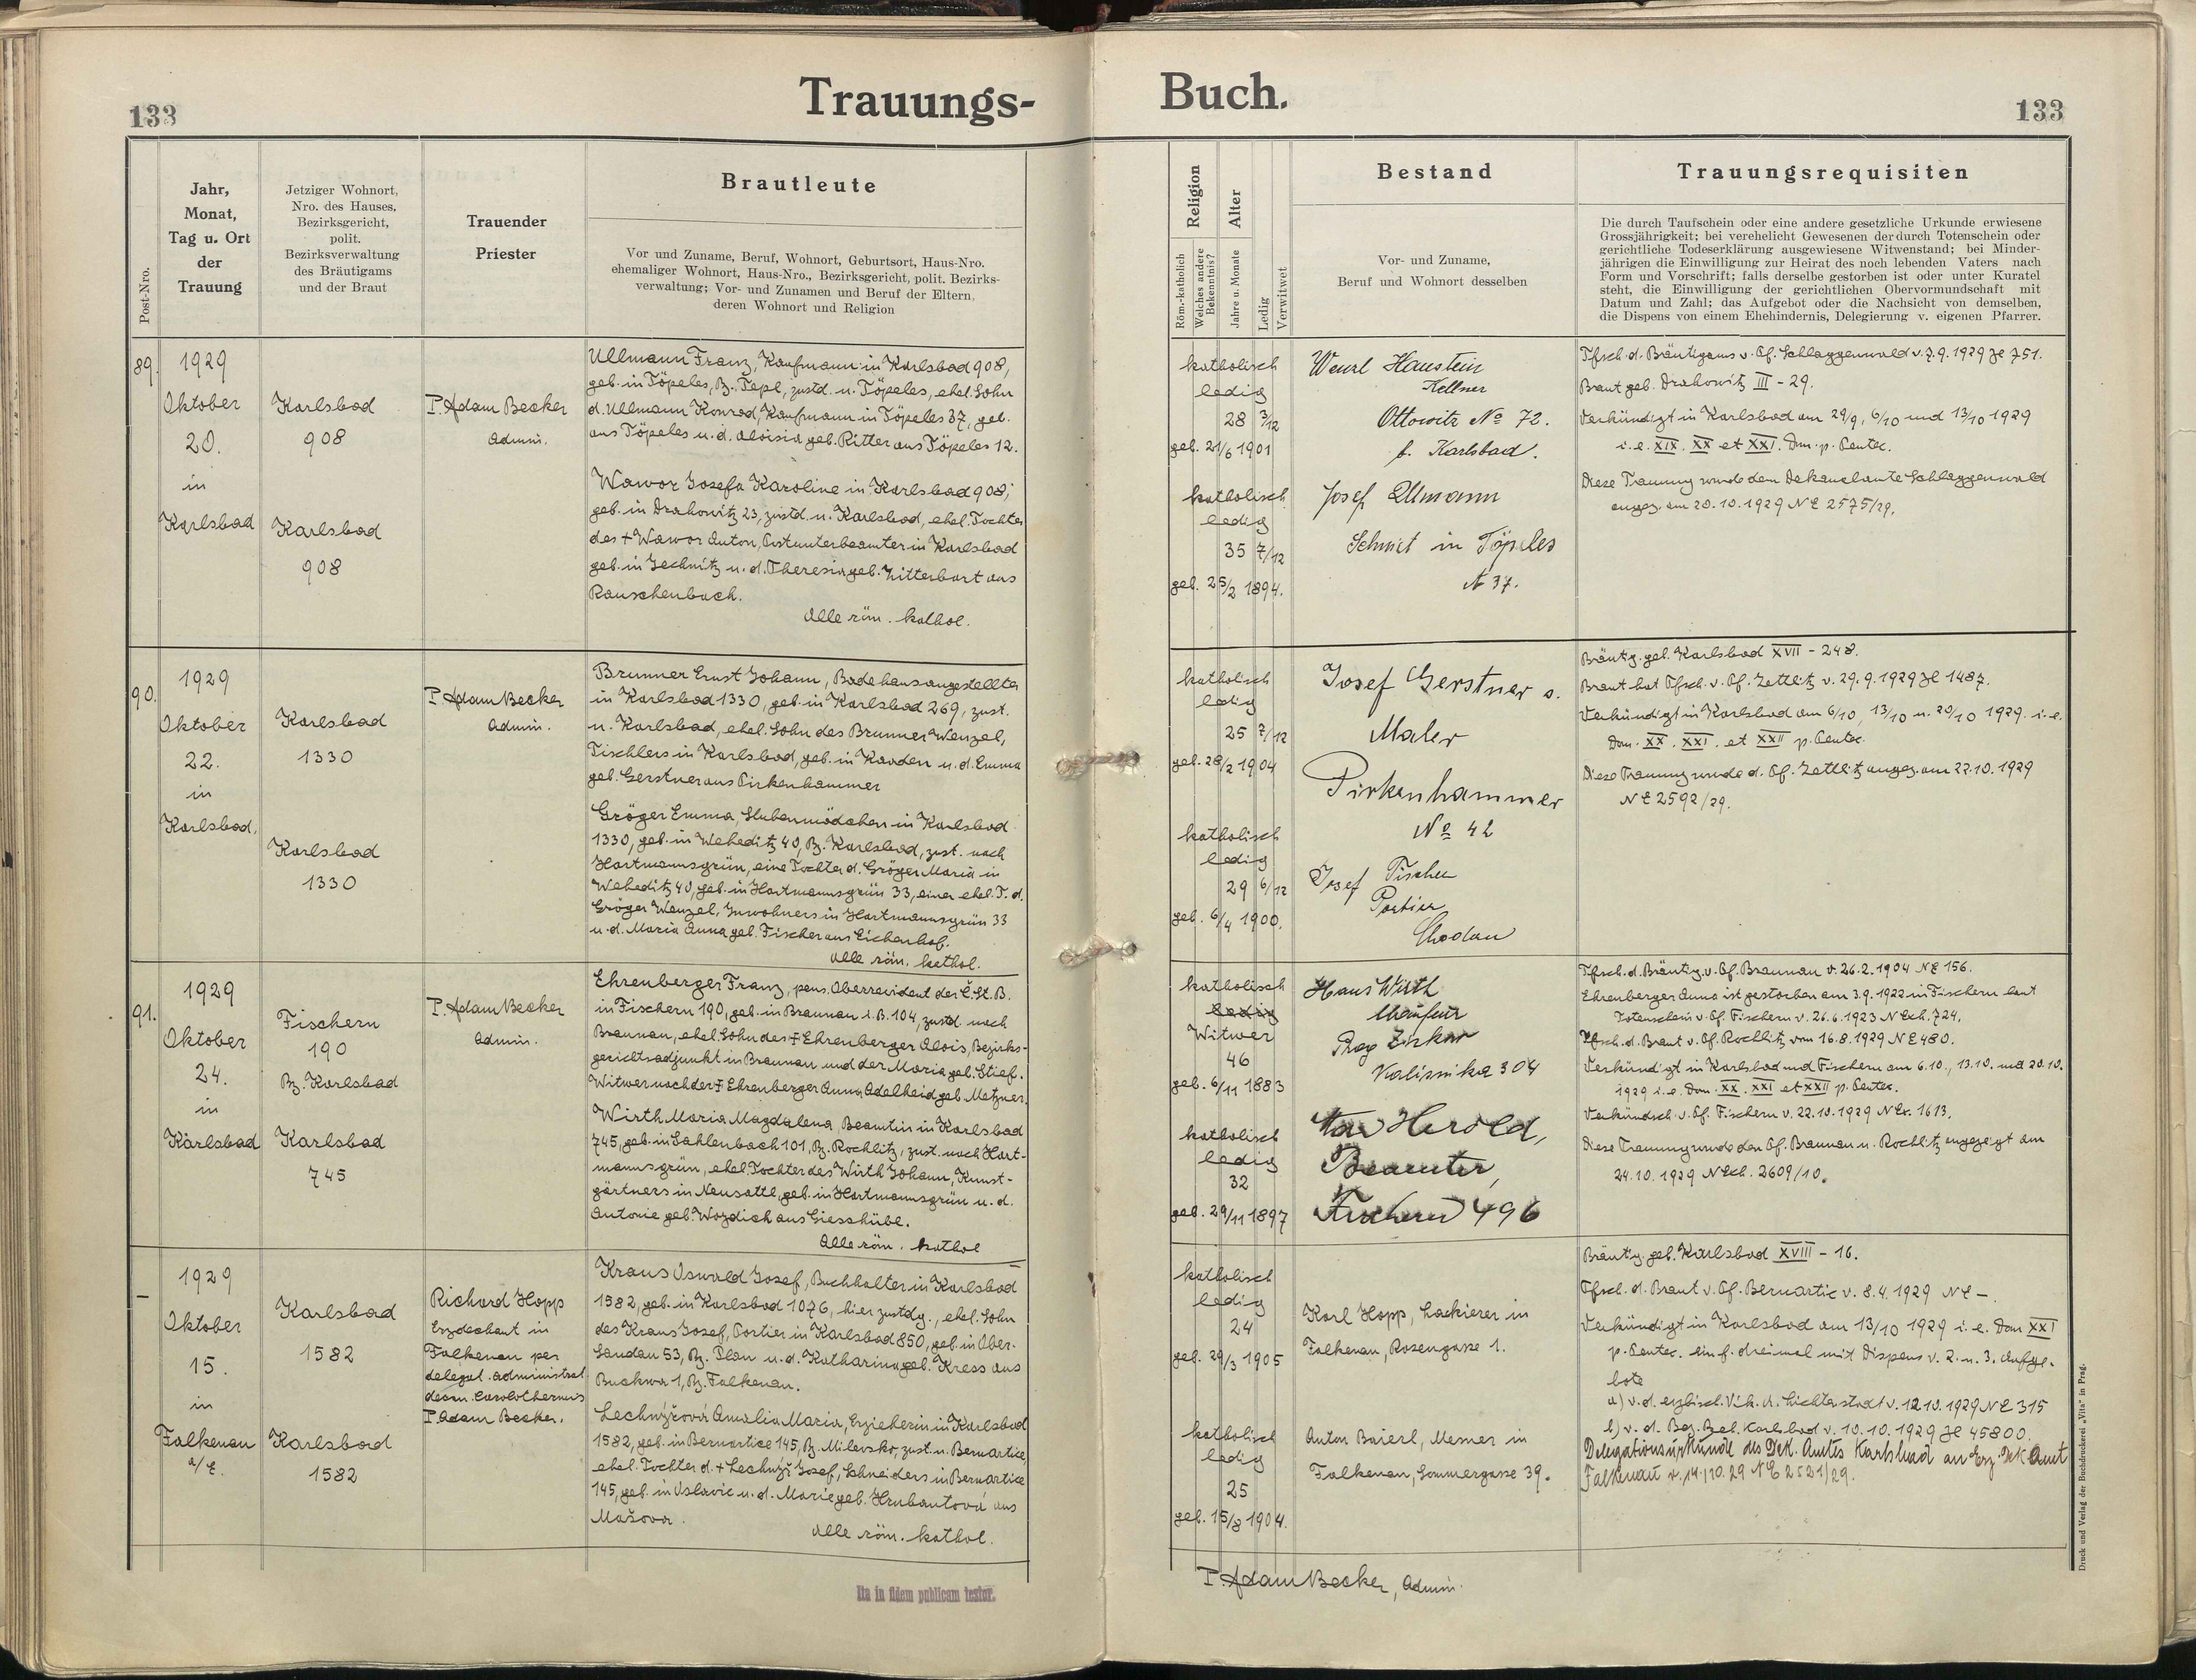 133
Trauungs-
Buch.
133
Post-Nro.
Jahr,
Monat,
Tag u. Ort
der
Trauung
Jetziger Wohnort,
Nro. des Hauses,
Bezirksgericht,
polit.
Bezirksverwaltung
des Bräutigams
und der Braut
Trauender
Priester
Brautleute
Vor und Zuname, Beruf, Wohnort, Geburtsort, Haus-Nro.
ehemaliger Wohnort, Haus-Nro., Bezirksgericht, polit. Bezirks-
verwaltung; Vor- und Zunamen und Beruf der Eltern,
deren Wohnort und Religion
Religion
Röm.-katholisch
Welches andere
Bekenntnis?
Alter
Jahre u. Monate
Ledig
Verwitwet
Bestand
Vor- und Zuname,
Beruf und Wohnort desselben
Trauungsrequisiten
Die durch Taufschein oder eine andere gesetzliche Urkunde erwiesene
Grossjährigkeit; bei verehelicht Gewesenen der durch Totenschein oder
gerichtliche Todeserklärung ausgewiesene Witwenstand; bei Minder-
jährigen die Einwilligung zur Heirat des noch lebenden Vaters nach
Form und Vorschrift; falls derselbe gestorben ist oder unter Kuratel
steht, die Einwilligung der gerichtlichen Obervormundschaft mit
Datum und Zahl; das Aufgebot oder die Nachsicht von demselben,
die Dispens von einem Ehehindernis, Delegierung v. eigenen Pfarrer.
89.
1929
Oktober
20.
in
Karlsbad
Karlsbad
908
Karlsbad
908
P. Adam Becker
Admin.
Ullmann Franz, Kaufmann in Karlsbad 908,
geb. in Töpeles, Bz. Tepl, zustd. n. Töpeles, ehel. Sohn
d. Ullmann Konrad, Kaufmann in Töpeles 37, geb.
aus Töpeles u. d. Aloisia geb. Ritter aus Töpeles 12.
Wawor Josefa Karoline in Karlsbad 908,
geb. in Drahowitz 23, zustd. n. Karlsbad, ehel. Tochter
des + Wawor Anton, Postunterbeamter in Karlsbad
geb. in Jechnitz u. d. Theresia geb. Zitterbart aus
Rauschenbach.
Alle röm. kathol.
katholisch
ledig
28 3/12
geb. 21/6 1901
katholisch
ledig
35 7/12
geb. 25/2 1894.
Wenzl Haustein
Kellner
Ottowitz No 72.
b. Karlsbad.
Josef Ullmann
Schmiet in Töpeles
N 37.
Tfsch. d. Bräutigams v. Pf. Schlaggenwald v. 7.9.1929 Zl 751.
Braut geb. Drahowitz III - 29.
Verkündigt in Karlsbad am 29/9, 6/10 und 13/10 1929
i. e. XIX. XX et XXI. Dom. p. Pentec.
Diese Trauung wurde dem Dekanalamte Schlaggenwald
angez. am 20.10.1929 NE 2575/29.
90.
1929
Oktober
22.
in
Karlsbad.
Karlsbad
1330
Karlsbad
1330
P. Adam Becker
Admin.
Brunner Ernst Johann, Badehausangestellter
in Karlsbad 1330, geb. in Karlsbad 269, zust.
n. Karlsbad, ehel. Sohn des Brunner Wenzel,
Tischlers in Karlsbad, geb. in Kaaden u. d. Emma
geb. Gerstner aus Pirkenhammer
Gröger Emma, Stubenmädchen in Karlsbad
1330, geb. in Weheditz 40, Bz. Karlsbad, zust. nach
Hartmannsgrün, eine Tochter d. Gröger Maria in
Weheditz 40, geb. in Hartmannsgrün 33, einer ehel. T. d.
Gröger Wenzel, Inwohners in Hartmannsgrün 33
u. d. Maria Anna geb. Fischer aus Eichenhof.
Alle röm. kathol.
katholisch
ledig
25 7/12
geb. 28/2 1904
katholisch
ledig
29 6/12
geb. 6/4 1900.
Josef Gerstner s.
Maler
Pirkenhammer
No 42
Josef Fischer
Portier
Chodau
Bräutig. geb. Karlsbad XVII - 248.
Braut hat Tfsch. v. Pf. Zettlitz v. 29.9.1929 Zl 1487.
Verkündigt in Karlsbad am 6/10, 13/10 u. 20/10 1929. i. e.
Dom. XX. XXI. et XXII p. Pentec.
Diese Trauung wurde d. Pf. Zettlitz angez. am 22.10.1929
NE 2592/29.
91.
1929
Oktober
24.
in
Karlsbad
Fischern
190
Bz. Karlsbad
Karlsbad
745
P. Adam Becker
Admin.
Ehrenberger Franz, pens. Oberrevident der Č. St. B.
in Fischern 190, geb. in Braunau i. B. 104, zustd. nach
Braunau, ehel. Sohn des + Ehrenberger Alois, Bezirks-
gerichtsadjunkt in Braunau und der Maria geb. Stief.
Witwer nach der + Ehrenberger Anna Adelheid geb. Metzner.
Wirth Maria Magdalena, Beamtin in Karlsbad
745, geb. in Sahlenbach 101, Bz. Rochlitz, zust. nach Hart-
mannsgrün, ehel. Tochter des Wirth Johann, Kunst-
gärtners in Neusattl, geb. in Hartmannsgrün u. d.
Antonie geb. Wozdich aus Giesshübl.
Alle röm. kathol
katholisch
ledig
Witwer
46
geb. 6/11 1883
katholisch
ledig
32
geb. 29/11 1897
Hans Wirth
Chaufeur
Prag Žižkov
Kalisnika 304
Herold,
Beamter,
Fischern 496
Tfsch. d. Bräutig. v. Pf. Braunau v. 26.2.1904 NE 156.
Ehrenberger Anna ist gestorben am 3.9.1922 in Fischern laut
Totenschein v. Pf. Fischern v. 26.6.1923 N Exh. 724.
Tfsch. d. Braut v. Pf. Rochlitz vom 16.8.1929 NE 480.
Verkündigt in Karlsbad und Fischern am 6.10., 13.10. und 20.10.
1929 i. e. Dom. XX. XXI et XXII p. Pentec.
Verkündsch. v. Pf. Fischern v. 22.10.1929 N Ex. 1613.
Diese Trauung wurde den Pf. Braunau u. Rochlitz angezeigt am
24.10.1929 N Exh. 2609/10.
–
1929
Oktober
15.
in
Falkenau
a/E.
Karlsbad
1582
Karlsbad
1582
Richard Hopp
Erzdechant in
Falkenau per
delegat. administrat.
decan. Carolothermis
P. Adam Becker.
Kraus Oswald Josef, Buchhalter in Karlsbad
1582, geb. in Karlsbad 1076, hier zustdg., ehel. Sohn
des Kraus Josef, Portier in Karlsbad 850, geb. in Ober-
Gandau 53, Bz. Plan u. d. Katharina geb. Kress aus
Buckwa 1, Bz. Falkenau.
Lechnýřová Amalia Maria, Erzieherin in Karlsbad
1582, geb. in Bernartice 145, Bz. Milevsko, zust. n. Bernartice,
ehel. Tochter d. + Lechnýř Josef, Schneiders in Bernartice
145, geb. in Oslavic u. d. Marie geb. Hrubantová aus
Mašova.
Alle röm. kathol.
katholisch
ledig
24
geb. 29/3 1905
katholisch
ledig
25
geb. 15/8 1904.
Karl Hopp, Lackierer in
Falkenau, Rosengasse 1.
Anton Baierl, Mesner in
Falkenau, Sommergasse 39.
Bräutig. geb. Karlsbad XVIII - 16.
Tfsch. d. Braut v. Pf. Bernartic v. 8.4.1929 NE –.
Verkündigt in Karlsbad am 13/10 1929 i. e. Dom XXI
p. Pentec. ein f. dreimal mit Dispens v. 2. u. 3. Aufge-
bote
a) v. d. erzbisch. Vik. A. Lichtenstadt v. 12.10.1929 NE 315
b) v. d. Bez. Beh. Karlsbad v. 10.10.1929 Zl 45800.
Delegationsurkunde des Dek. Amtes Karlsbad an Erz. Dek Amt
Falkenau v. 14.10.29 NE 2521/29.
Ita in fidem publicam testor.
P. Adam Becker, Admin.
Druck und Verlag der Buchdruckerei „Vita" in Prag.